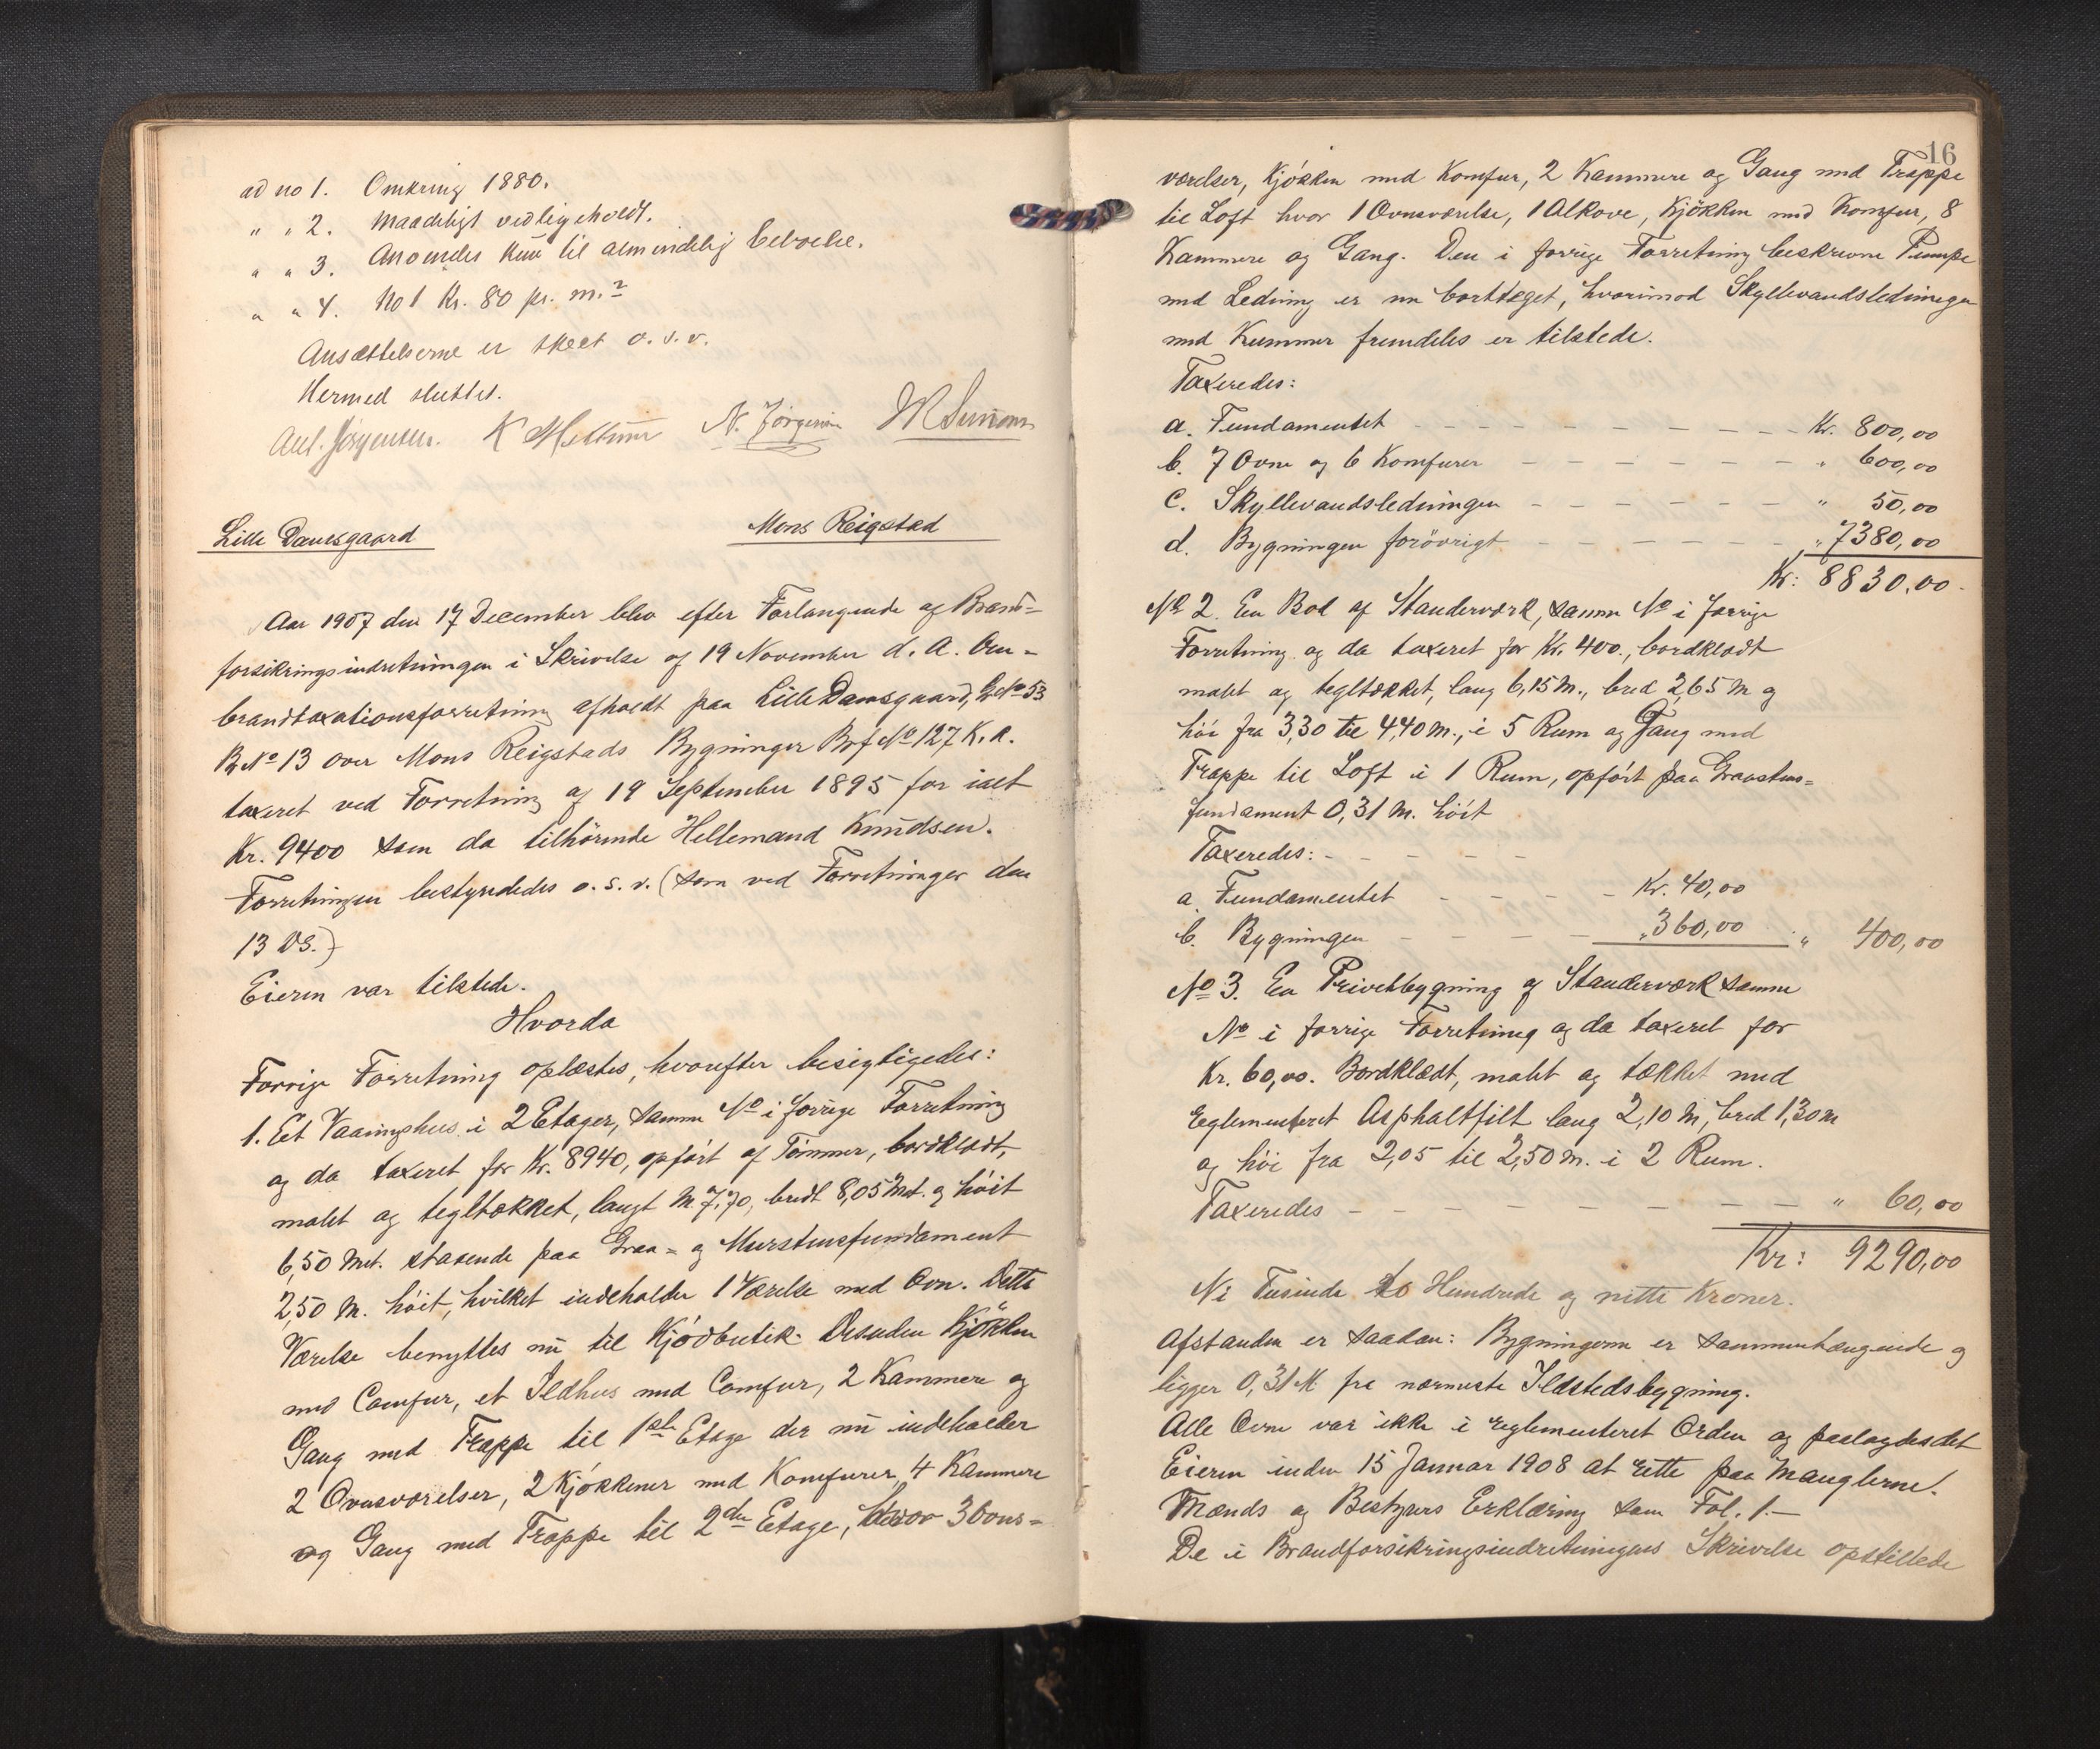 ad no 1. Omkring 1880.
" " 2. Maadeligt vedligeholdt.
" " 3. Anvendes kun til almindelig beboelse.
" " 4. No 1 Kr. 80 pr. m.²
Ansættelserne er skeet o. s. v.
Hermed sluttet.
Ant. Jörgensen. K N. Jörgensen
Lille Damsgaard
Mons Reigstad
Aar 1907 den 17 December blev efter Forlangende af Brand-
forsikringsindretningen i Skrivelse af 19 November d. A. Om-
brandtaxationsforretning afholdt paa Lille Damsgaard, G No 53
B. No 13 over Mons Reigstads Bygninger Brf No 127 K. A.
taxeret ved Forretning af 19 September 1895 for ialt
Kr. 9400 som da tilhörende Hellemand Knudsen.
Forretningen bestyrededes o. s. v. (som ved Forretninger den
13 ds.)
Eieren var tilstede.
Hvorda
Forrige Forretning oplæstes, hvorefter besigtigedes:
1. Et Vaaningshus i 2 Etager, samme No i forrige Forretning
og da taxeret for Kr. 8940, opfört af Tömmer, bordklædt,
malet og tegltækket, langt M. 7,70, bredt 8,05 Met. og höit
6,50 Met. staaende paa Graa- og Murstensfundament
2,50 M. höit, hvilket indeholder 1 Værelse med Ovn. Dette
Værelse benyttes nu til Kjödbutik. Desuden Kjökken
med Comfur, et Ildhus med Comfur, 2 Kammere og
Gang med Trappe til 1ste Etage der nu indeholder
2 Ovnsværelser, 2 Kjökkener med Komfurer, 4 Kammere
og Gang med Trappe til 2den Etage, hvor 3 Ovns-
16
værelser, Kjökken med Komfur, 2 Kammere og Gang med Trappe
til Loft hvor 1 Ovnsværelse, 1 Alkove, Kjökken med Komfur, 8
Kammere og Gang. Den i forrige Forretning beskrevne Pumpe
med Ledning er nu borttaget, hvorimod Skyllevandsledningen
med Kummer fremdeles er tilstede.
Taxeredes:
a. Fundamentet - - - - - - - - - - Kr. 800,00
b. 7 Ovne og 6 Komfurer - - - - - - - " 600,00
c. Skyllevandsledningen - - - - - - - " 50,00
d. Bygningen forövrigt - - - - - - - " 7380,00
Kr: 8830,00.
No 2. En Bod af Standerværk, samme No i forrige
Forretning og da taxeret for Kr. 400., bordklædt
malet og tegltækket, lang 6,15 M., bred 2,65 M og
höi fra 3,30 til 4,40 M., i 5 Rum og Gang med
Trappe til Loft i 1 Rum, opfört paa Graastens-
fundament 0,31 M. höit
Taxeredes: - - - - -
a. Fundamentet - - - - Kr. 40,00
b. Bygningen - - - - " 360,00 " 400,00
No 3. En Privetbygning af Standerværk samme
No i forrige Forretning og da taxeret for
Kr. 60,00. Bordklædt, malet og tækket med
reglementeret Asphaltfilt lang 2,10 M, bred 1,30 M
og höi fra 2,05 til 2,50 M. i 2 Rum.
Taxeredes - - - - - - - - - " 60,00
Kr: 9290,00
Ni Tusinde to Hundrede og nitti Kroner.
Afstanden er saadan: Bygningerne er sammenhængende og
ligger 0,31 M fra nærmeste Ildstedsbygning.
Alle Ovne var ikke i reglementeret Orden og paalagdes det
Eieren inden 15 Januar 1908 at rette paa Manglerne.
Mænds og Bestyrers Erklæring som Fol. 1.—
De i Brandforsikringsindretningens Skrivelse opstillede